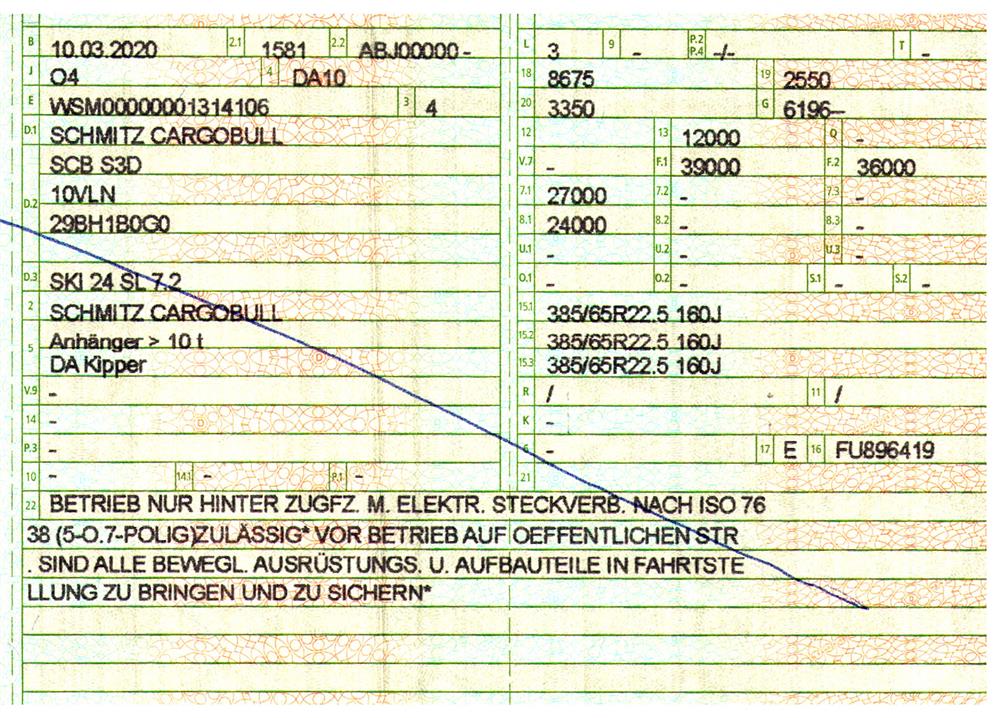 B 10.03.2020 2.1 1581 2.2 ABJ00000 -
J O4 4 DA10
E WSM00000001314106 3 4
D.1 SCHMITZ CARGOBULL
SCB S3D
10VLN
D.2 29BH1B0G0
D.3 SKI 24 SL 7.2
2 SCHMITZ CARGOBULL
Anhänger > 10 t
5 DA Kipper
V.9 -
14 -
P.3 -
10 - 14.1 - P.1 -
L 3 9 - P.2 P.4 -/- T -
18 8675 19 2550
20 3350 G 6196--
12 13 12000 Q -
V.7 - F.1 39000 F.2 36000
7.1 27000 7.2 - 7.3 -
8.1 24000 8.2 - 8.3 -
U.1 - U.2 - U.3 -
O.1 - O.2 - S.1 - S.2 -
15.1 385/65R22.5 160J
15.2 385/65R22.5 160J
15.3 385/65R22.5 160J
R / 11 /
K -
6 - 17 E 16 FU896419
21
22 BETRIEB NUR HINTER ZUGFZ. M. ELEKTR. STECKVERB. NACH ISO 76
38 (5-O.7-POLIG)ZULÄSSIG* VOR BETRIEB AUF OEFFENTLICHEN STR
. SIND ALLE BEWEGL. AUSRÜSTUNGS. U. AUFBAUTEILE IN FAHRTSTE
LLUNG ZU BRINGEN UND ZU SICHERN*